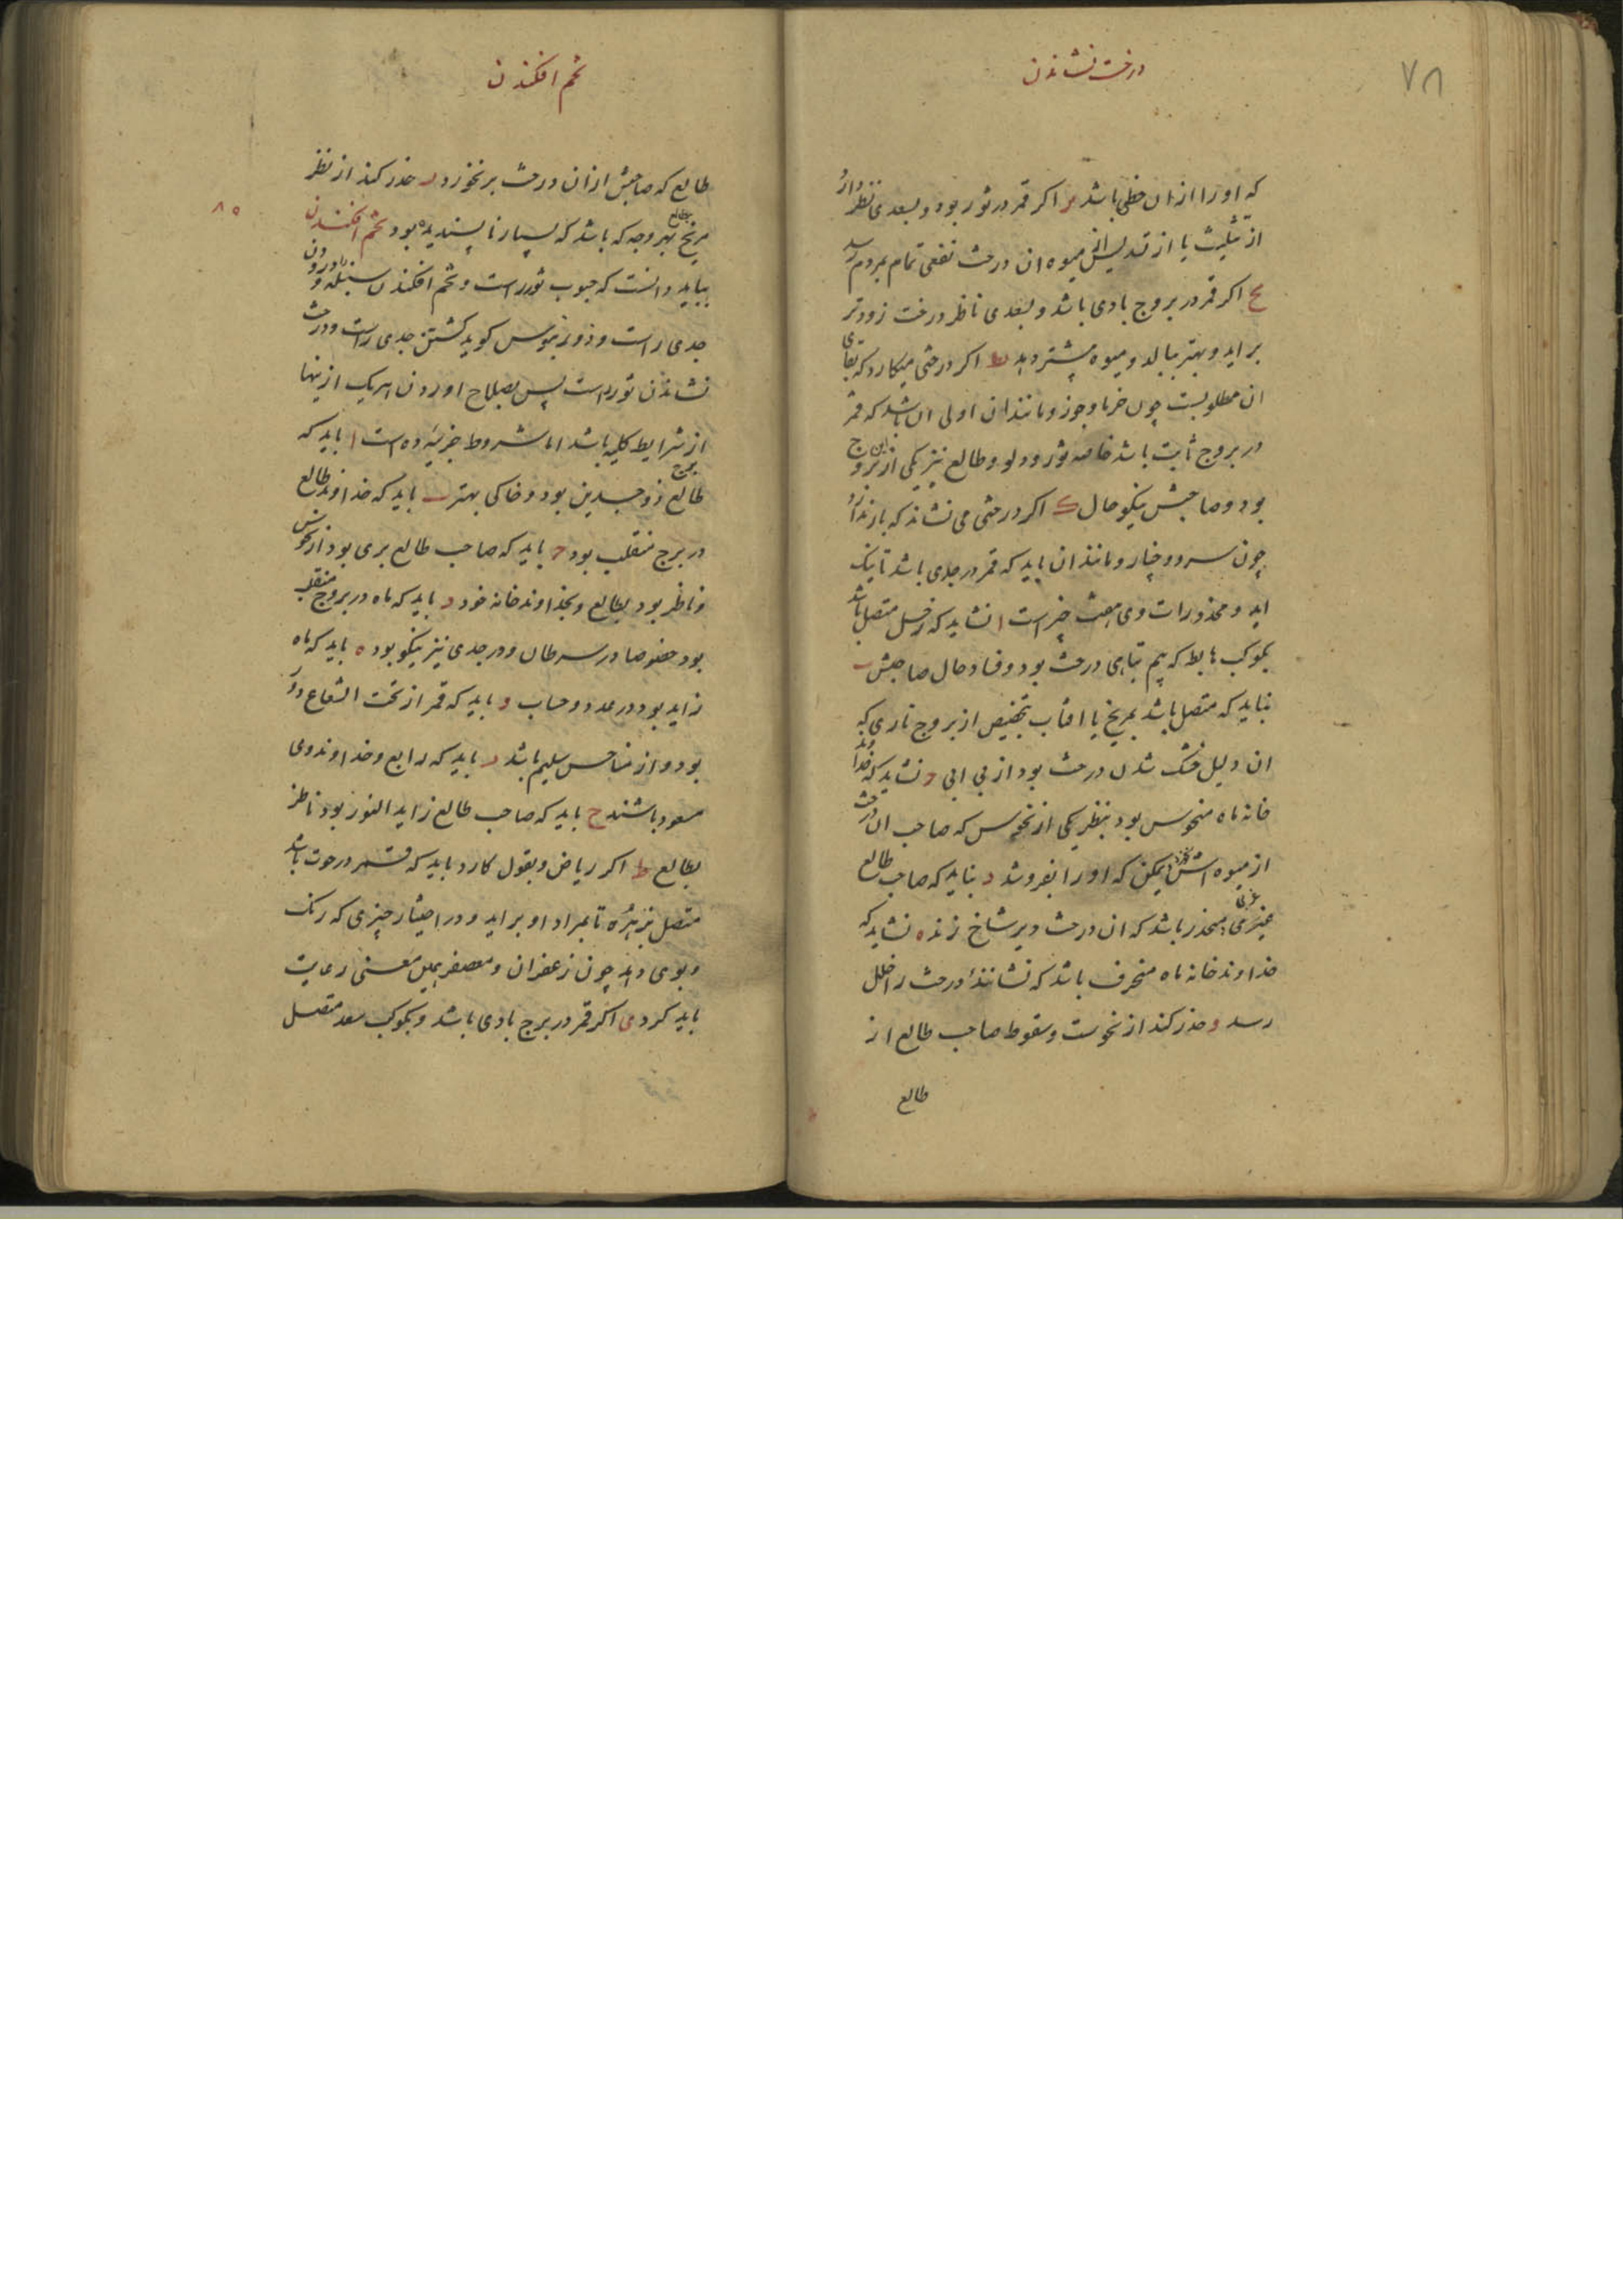 ۷۸
درخت نشاندن
که او را از ان حظی باشد یز اکر قمر در ثور بود و بسعدی نظر دارد
از تثلیث یا از تسدیس میوه ان درخت نفعی تمام بمردم رسد
یح اکر قمر در بروج بادی باشد و بسعدی ناظر درخت زودتر
براید و بهتر ببالد و میوه پیشتر دهد یط اکر درختی میکارد که بقای
ان مطلوبست چون خرما و جوز و مانند ان اولی ان باشد که قمر
در بروج ثابت باشد خاصه ثور و دلو و طالع نیز یکی ازین بروج
بود و صاحبش نیکو حال ک اکر درختی می نشاند که بار ندارد
چون سرو و چنار و مانند ان باید که قمر در جدی باشد تا نیک
اید و محذورات وی هفت چیز است ا نشاید که زحل متصل باشد
بکوکب هابط که بیم تباهی درخت بود و فساد حال صاحبش ب
نباید که متصل باشد بمریخ یا افتاب بتخصیص از بروج ناری که
ان دلیل خشک شدن درخت بود از بی ابی ج نشاید که خداوند
خانه ماه منحوس بود بنظر یکی از نحوس که صاحب ان درخت
از میوه اش نخورد لیکن که او را بفروشد د نباید که صاحب طالع
غربی منحدر باشد که ان درخت دیر شاخ زند ه نشاید که
خداوند خانه ماه منحرف باشد که نشاننده درخت را خلل
رسد و حذر کند از نحوست و سقوط صاحب طالع از
طالع
تخم افکندن
طالع که صاحبش از ان درخت بر نخورد ز حذر کند از نظر
مریخ بطالع بهر وجه که باشد که بسیار ناپسندیده بود تخم افکندن
بباید دانست که حبوب ثور راست و تخم افکندن سنبله را و درودن
جدی راست و ذورنیوس کوید کشتن جدی راست و درخت
نشاندن ثور راست پس بصلاح اوردن هر یک ازینها
از شرایط کلیه باشد اما شروط جزئیه ده است ا باید که
طالع برج ذوجسدین بود و خاکی بهتر ب باید که خداوند طالع
در برج منقلب بود ج باید که صاحب طالع بری بود از نحوس
و ناظر بود بطالع و بخداوند خانه خود د باید که ماه در بروج منقلب
بود خصوصا در سرطان و در جدی نیز نیکو بود ه باید که ماه
زاید بود در عدد و حساب و باید که قمر از تحت الشعاع دور
بود و از مناحس سلیم باشد ز باید که رابع و خداوند وی
مسعود باشند ح باید که صاحب طالع زاید النور بود ناظر
بطالع ط اکر ریاض و بقول کارد باید که قمر در حوت باشد
متصل بزهره تا بمراد او براید و در اختیار چیزی که رنک
و بوی دهد چون زعفران و معصفر همین معنی رعایت
باید کرد ی اکر قمر در برج بادی باشد و بکوکب سعد متصل